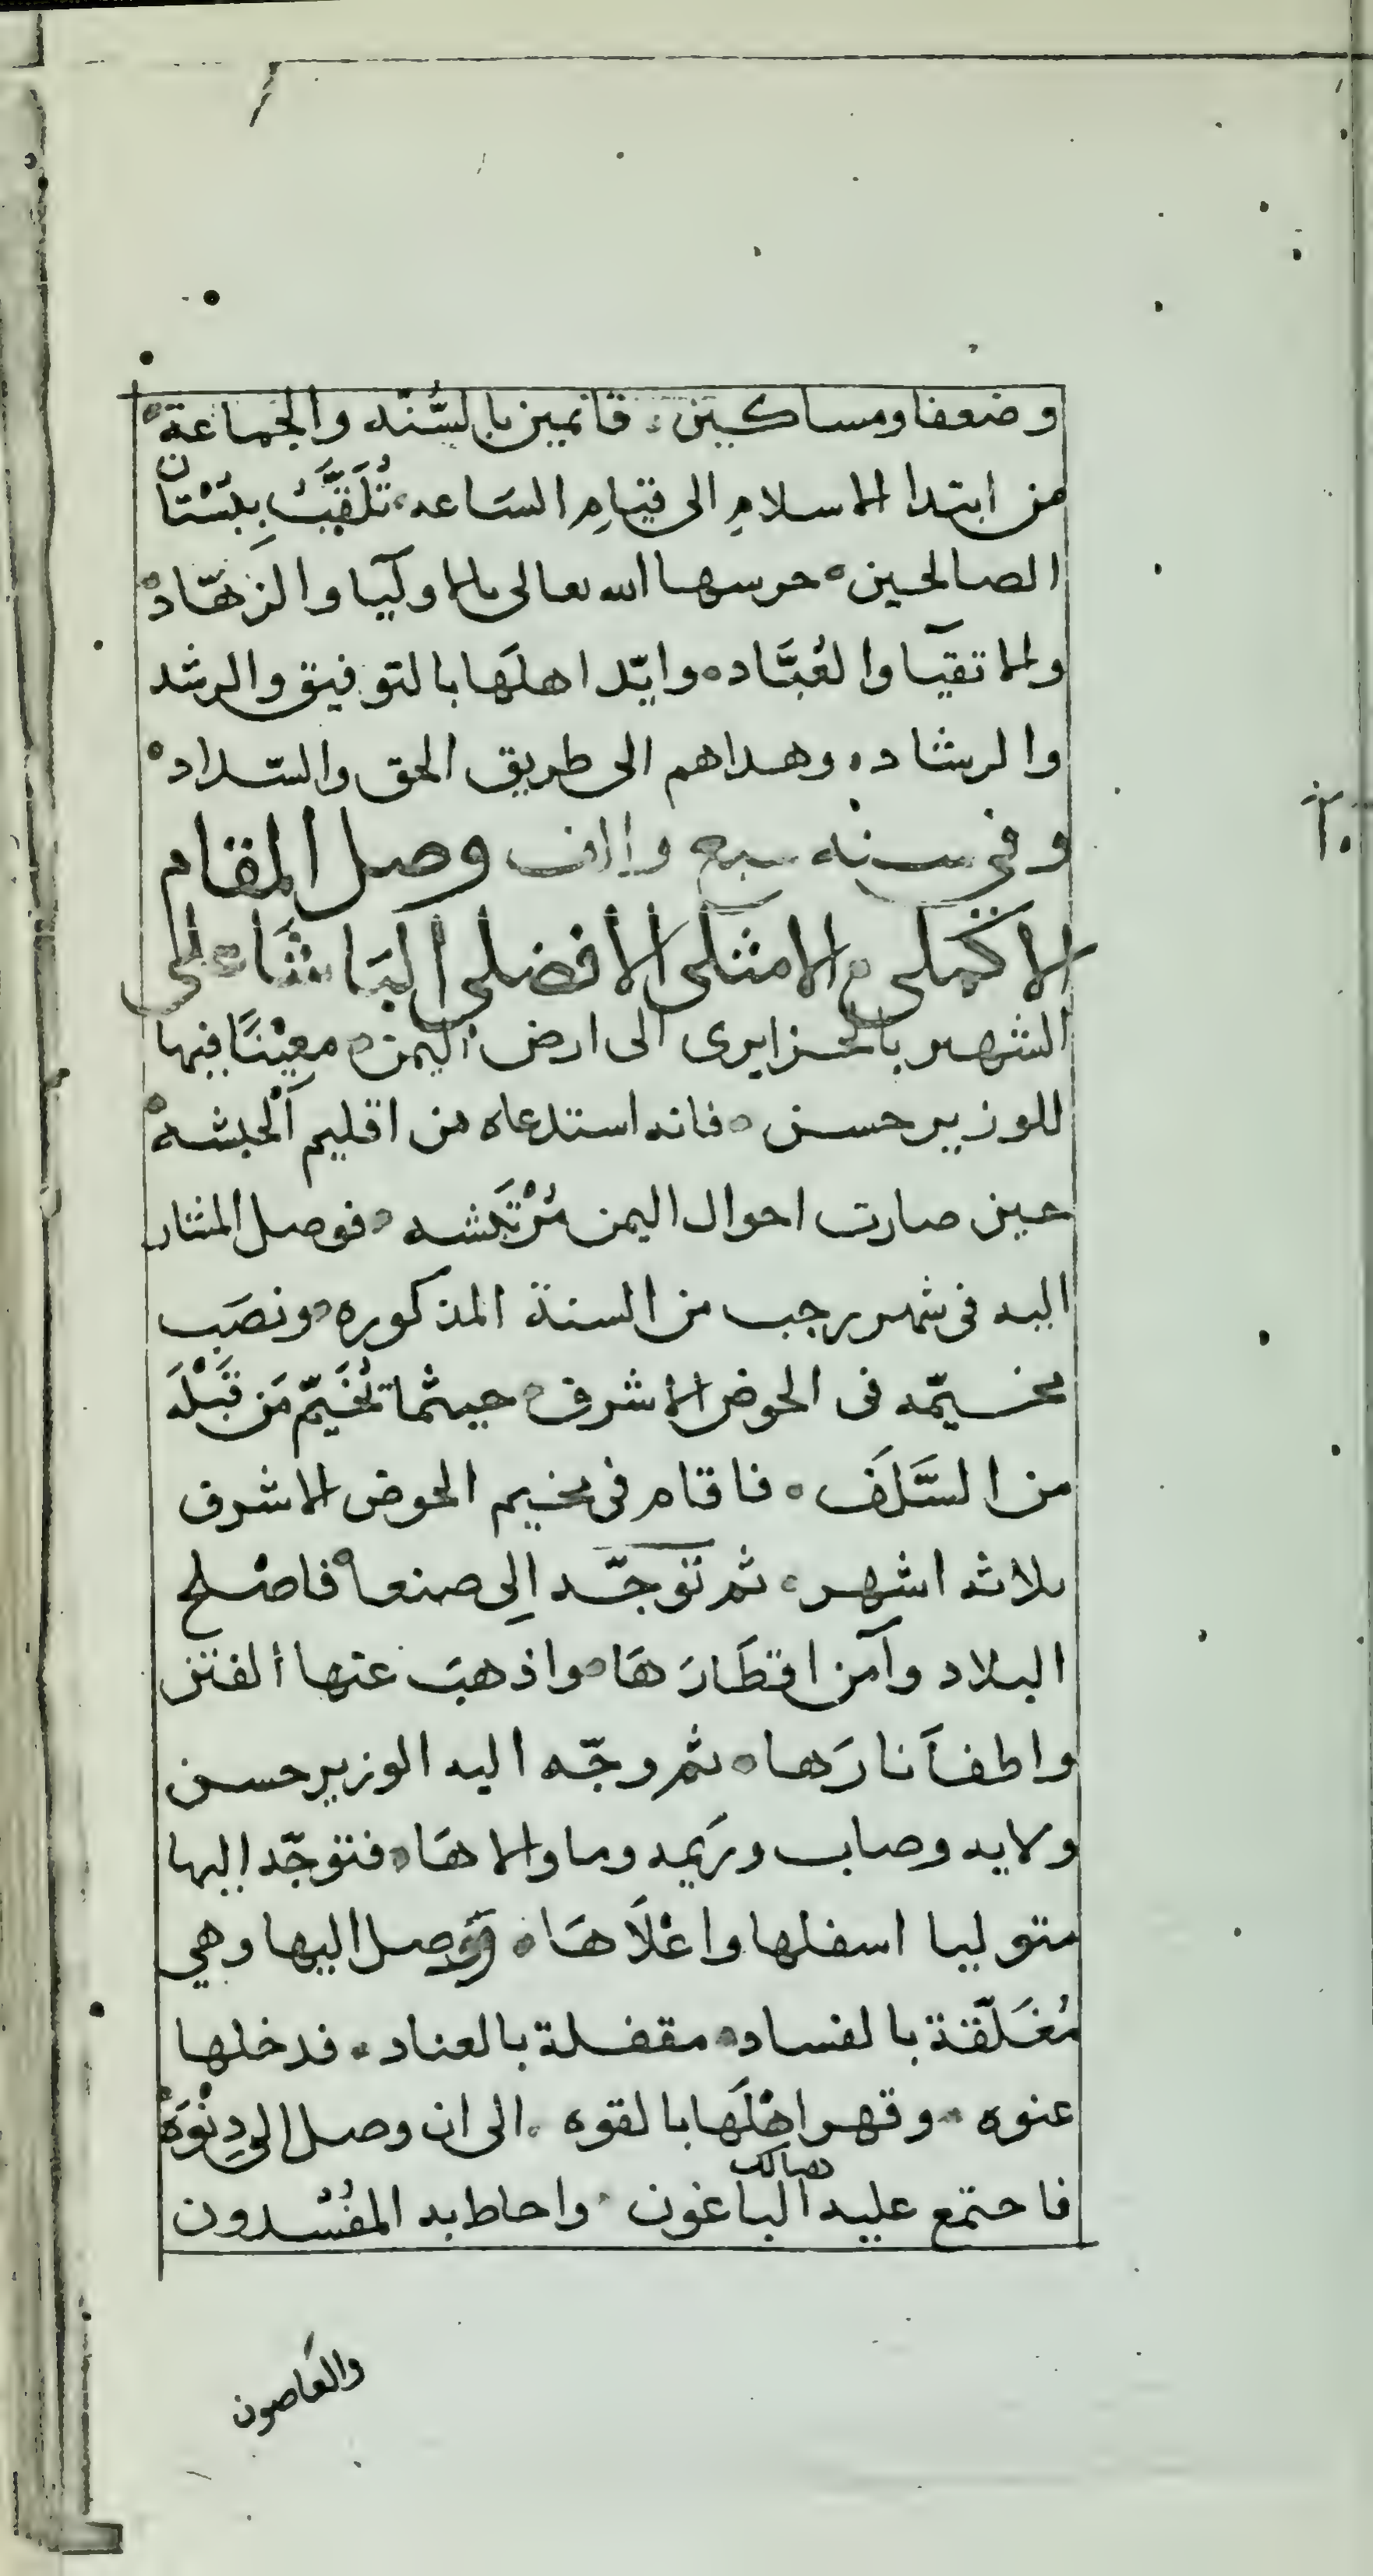 وضعفا ومساكين، قائمين بالسُّنّه والجماعة
من ابتدا الاسلامِ الى قيامِ السَاعه، تُلَقَّبُ بِبُسْتان
الصالحين ه حرسها الله تعالى بالاوليَا والزهّاد ه
والاتقيَا والعُبَّاد ه وايّد اهلَها بالتوفيق والرشد
والرشاد ه وهداهم الى طريق الحق والسّداد ه
وفي سنه سبع والف وصل المقام
الاكملى ه الامثلى الافضلى البَاشَا على
الشهير بالجزايرى الى ارض اليمن ه معيْنًا فيها
للوزير حسن ه فانه استدعاه من اقليم الحبشه ه
حين صارت احوال اليمن مُرْتَكشه ه فوصل المشار
اليه فى شهر رجب من السنة المذكوره ه ونصَب
مخيمّه فى الحوض الاشرف ه حيثما تُخَيّم مَن قَبْلَه
من السَّلَف ه فاقام فى مخيم الحوض الاشرف
ثلاثه اشهر ه ثم توجّه اِلى صنعا ه فاصْلح
البلاد وآمن اقطَارَهَا ه واذهبَ عنها الفتن
واطفأ نارَها ه ثم وجّه اليه الوزير حسن
ولايه وصاب ورَيمه وما والاهَا ه فتوجّه إليها
متوليا اسفلها واعْلَاهَا ه فوصل اليها وهي
مُغَلّقة بالفساد ه مقفلة بالعناد ه فدخلها
عنوه ه وقهر اهْلَها بالقوه ه الى ان وصل الى دِنْوَهْ
فاجتمع عليه هنالك الباغون ه واحاط به المفْسُدون
والعَاصون